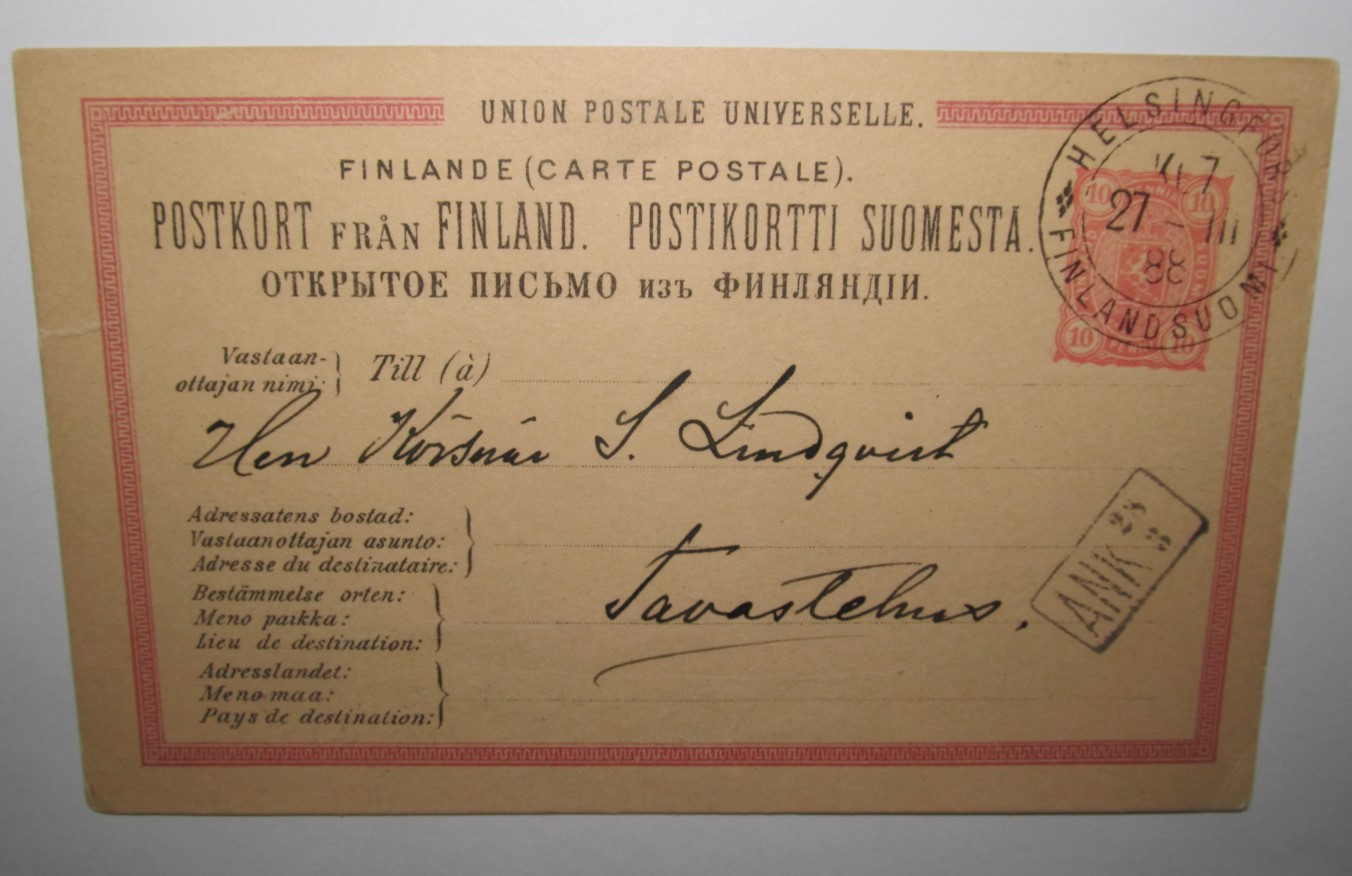 UNION POSTALE UNIVERSELLE.
FINLANDE (CARTE POSTALE).
POSTKORT FRÅN FINLAND. POSTIKORTTI SUOMESTA.
ОТКРЫТОЕ ПИСЬМО изъ ФИНЛЯНДІИ.
HELSINGFORS
K.7
27 – III
88
FINLAND SUOMI
10 10
10 10
Vastaan-
ottajan nimi:
Till (à)
Herr S. Lindqvist
Adressatens bostad:
Vastaanottajan asunto:
Adresse du destinataire:
Tavastehus.
Bestämmelse orten:
Meno paikka:
Lieu de destination:
ANK 28 3
Adresslandet:
Meno maa:
Pays de destination: